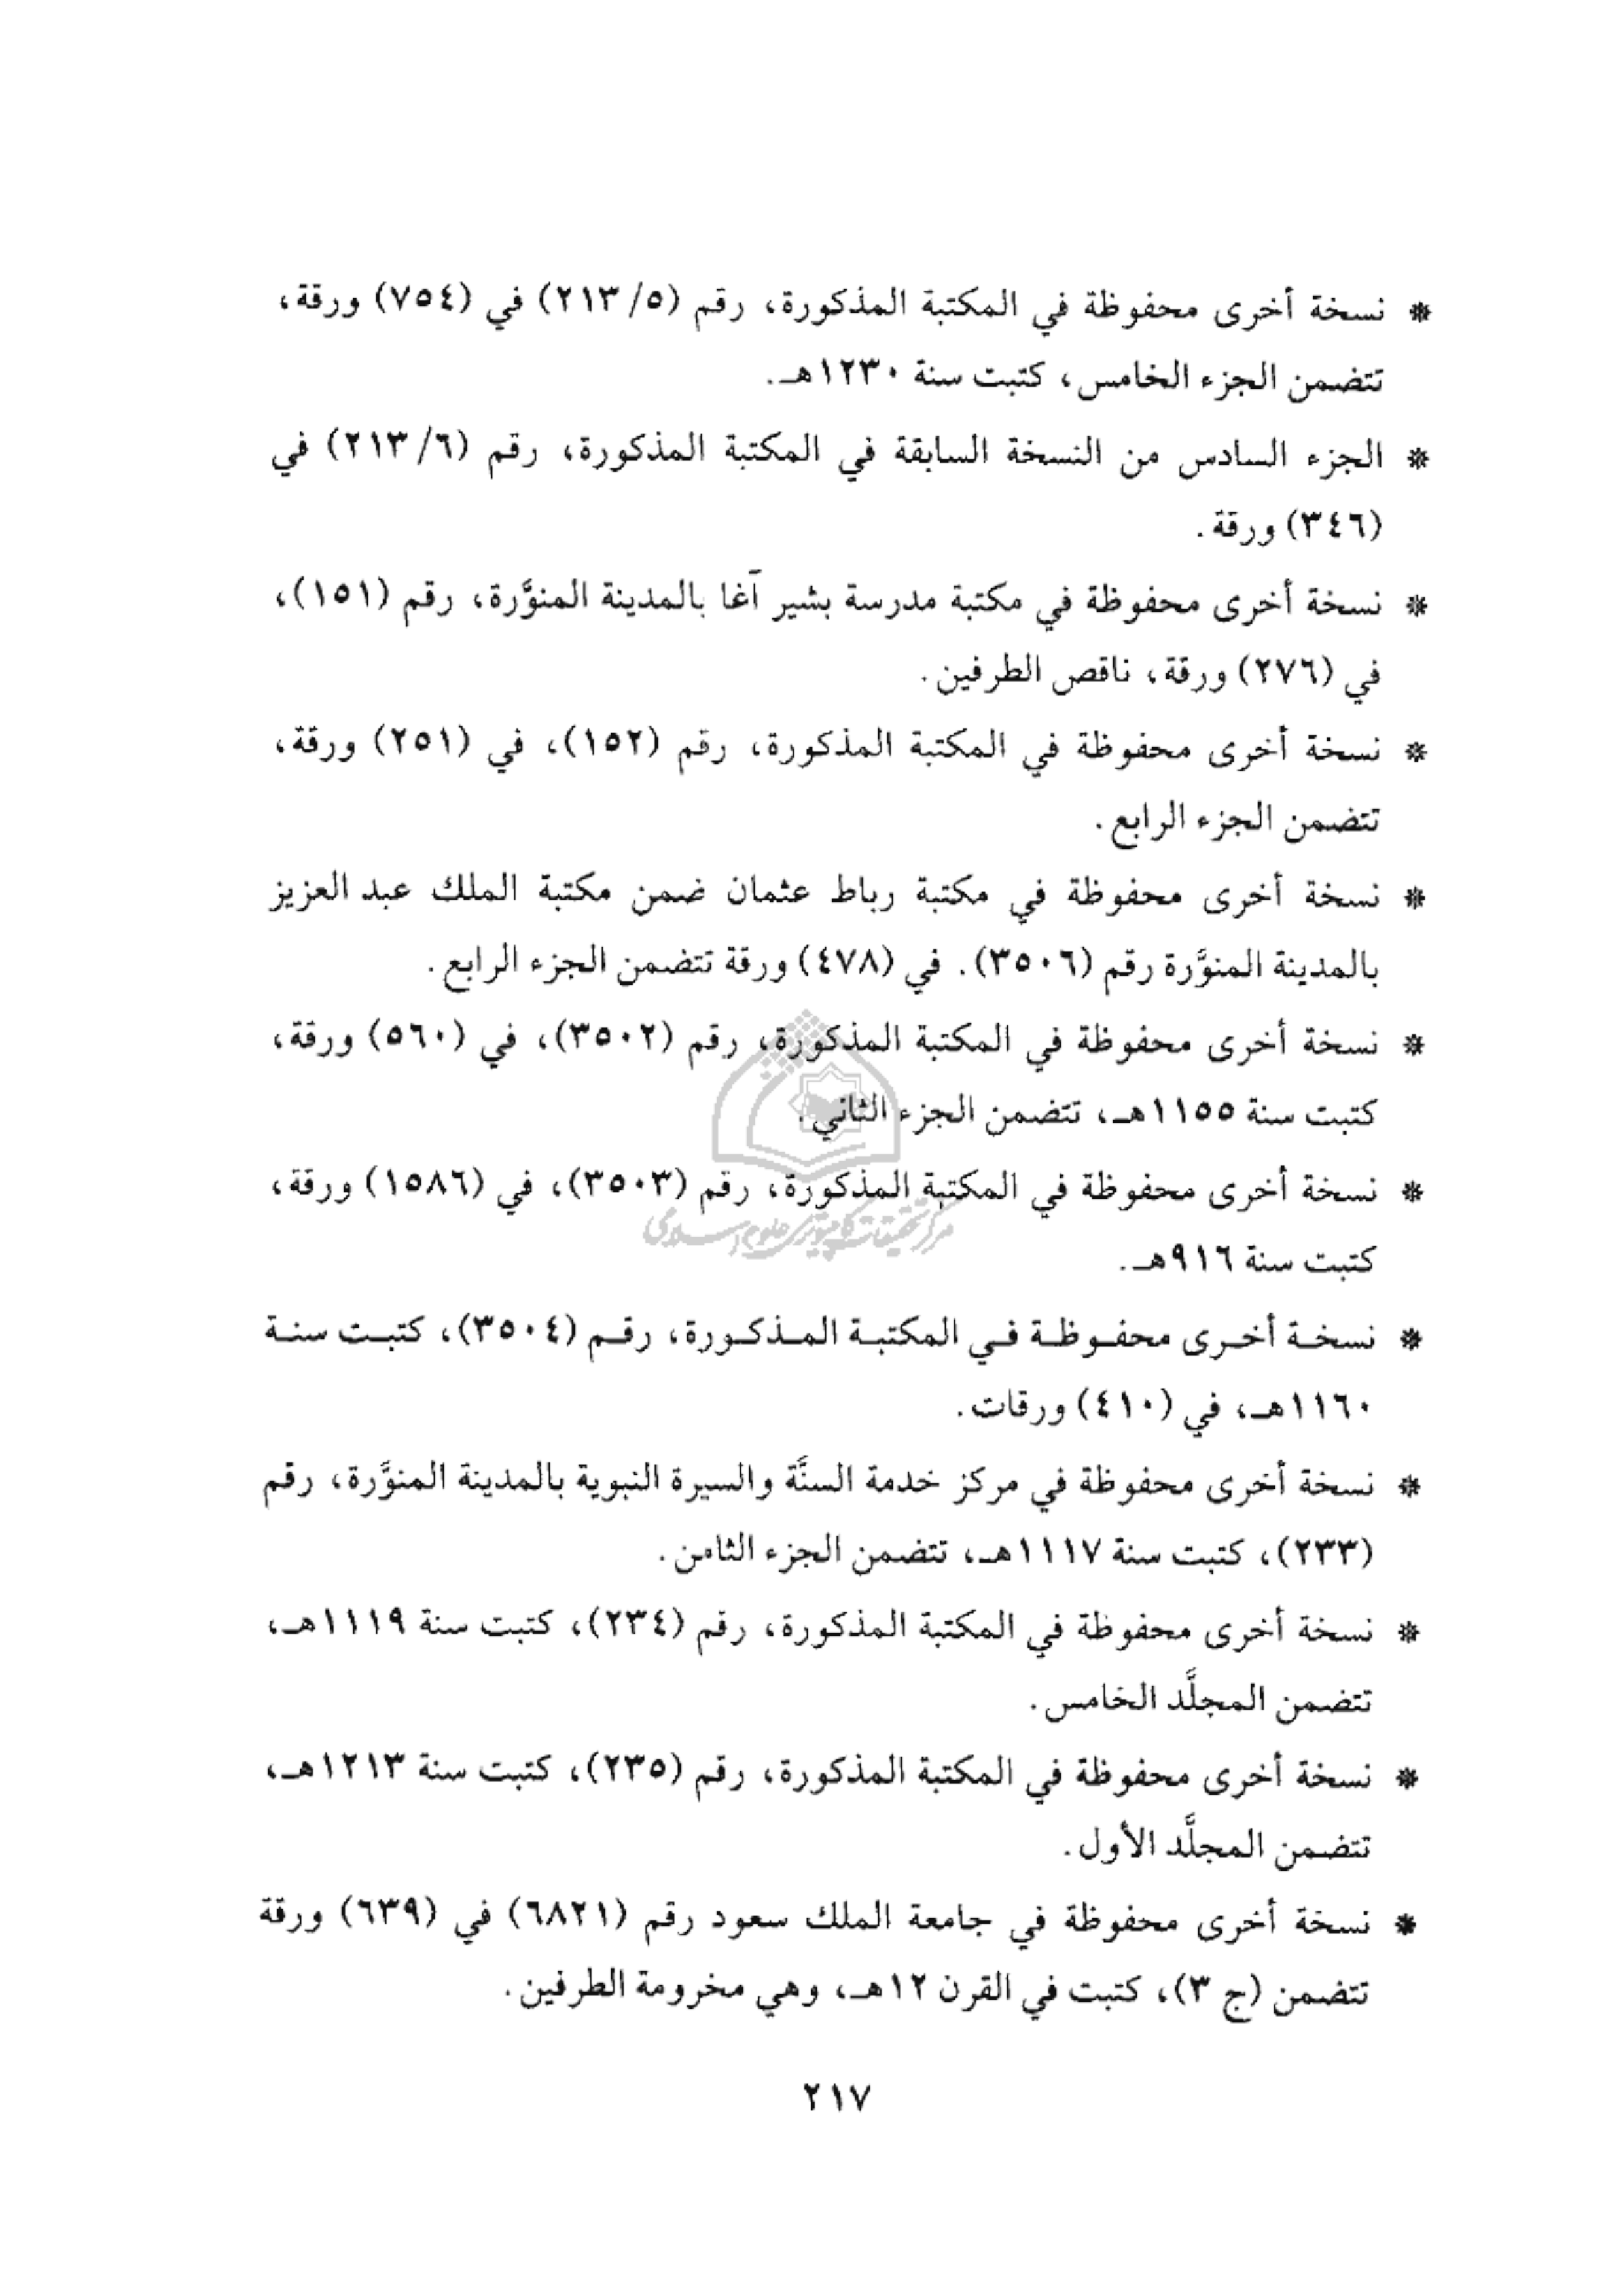 * نسخة أخرى محفوظة في المكتبة المذكورة، رقم (٢١٣/٥) في (٧٥٤) ورقة،
تتضمن الجزء الخامس، كتبت سنة ١٢٣٠هـ.
* الجزء السادس من النسخة السابقة في المكتبة المذكورة، رقم (٢١٣/٦) في
(٣٤٦) ورقة.
* نسخة أخرى محفوظة في مكتبة مدرسة بشير آغا بالمدينة المنوَّرة، رقم (١٥١)،
في (٢٧٦) ورقة، ناقص الطرفين.
* نسخة أخرى محفوظة في المكتبة المذكورة، رقم (١٥٢)، في (٢٥١) ورقة،
تتضمن الجزء الرابع.
* نسخة أخرى محفوظة في مكتبة رباط عثمان ضمن مكتبة الملك عبد العزيز
بالمدينة المنوَّرة رقم (٣٥٠٦). في (٤٧٨) ورقة تتضمن الجزء الرابع.
* نسخة أخرى محفوظة في المكتبة المذكورة، رقم (٣٥٠٢)، في (٥٦٠) ورقة،
كتبت سنة ١١٥٥هـ، تتضمن الجزء الثاني.
* نسخة أخرى محفوظة في المكتبة المذكورة، رقم (٣٥٠٣)، في (١٥٨٦) ورقة،
مركز تحقيقات كامپيوترى علوم اسلامى
كتبت سنة ٩١٦هـ.
* نسخة أخرى محفوظة في المكتبة المذكورة، رقم (٣٥٠٤)، كتبت سنة
١١٦٠هـ، في (٤١٠) ورقات.
* نسخة أخرى محفوظة في مركز خدمة السنَّة والسيرة النبوية بالمدينة المنوَّرة، رقم
(٢٣٣)، كتبت سنة ١١١٧هـ، تتضمن الجزء الثامن.
* نسخة أخرى محفوظة في المكتبة المذكورة، رقم (٢٣٤)، كتبت سنة ١١١٩هـ،
تتضمن المجلَّد الخامس.
* نسخة أخرى محفوظة في المكتبة المذكورة، رقم (٢٣٥)، كتبت سنة ١٢١٣هـ،
تتضمن المجلَّد الأول.
* نسخة أخرى محفوظة في جامعة الملك سعود رقم (٦٨٢١) في (٦٣٩) ورقة
تتضمن (ج ٣)، كتبت في القرن ١٢هـ، وهي مخرومة الطرفين.
٢١٧